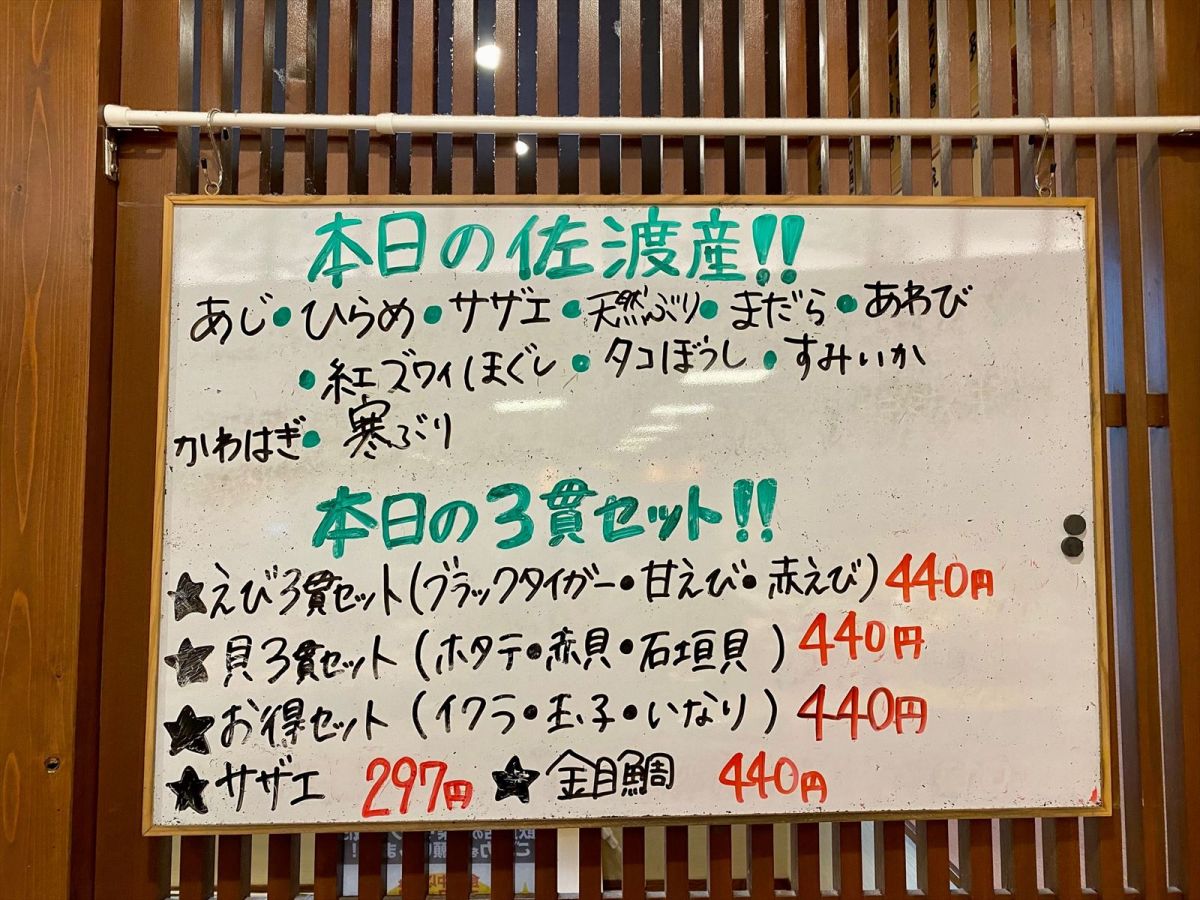 本日の佐渡産!!
あじ・ひらめ・サザエ・天然ぶり・まだら・あわび
・紅ズワイほぐし・タコぼうし・すみいか
かわはぎ・寒ぶり
本日の3貫セット!!
★えび3貫セット(ブラックタイガー・甘えび・赤えび)440円
★貝3貫セット(ホタテ・赤貝・石垣貝)440円
★お得セット(イクラ・玉子・いなり)440円
★サザエ 297円 ★金目鯛 440円